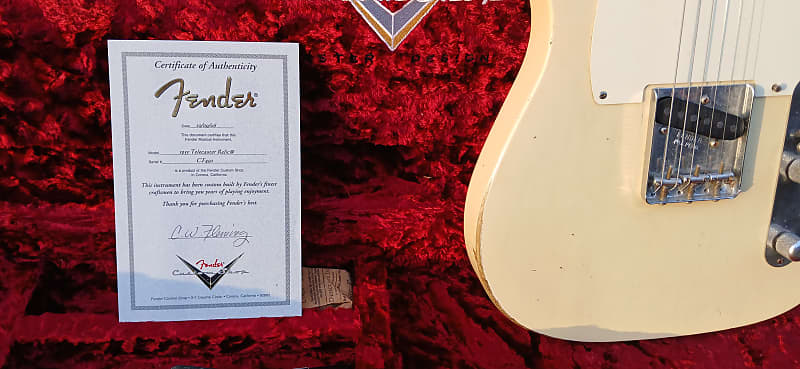 Certificate of Authenticity
Fender
This document certifies that this
Fender Musical Instrument,
Model 1955 Telecaster Relic®
Serial #
is a product of the Fender Custom Shop
in Corona, California
This instrument has been custom built by Fender's finest
craftsmen to bring you years of playing enjoyment.
Thank you for purchasing Fender's best.
C W Fleming
Fender
Custom Shop
Fender Custom Shop • 311 Cessna Circle • Corona, California •
DESIGN